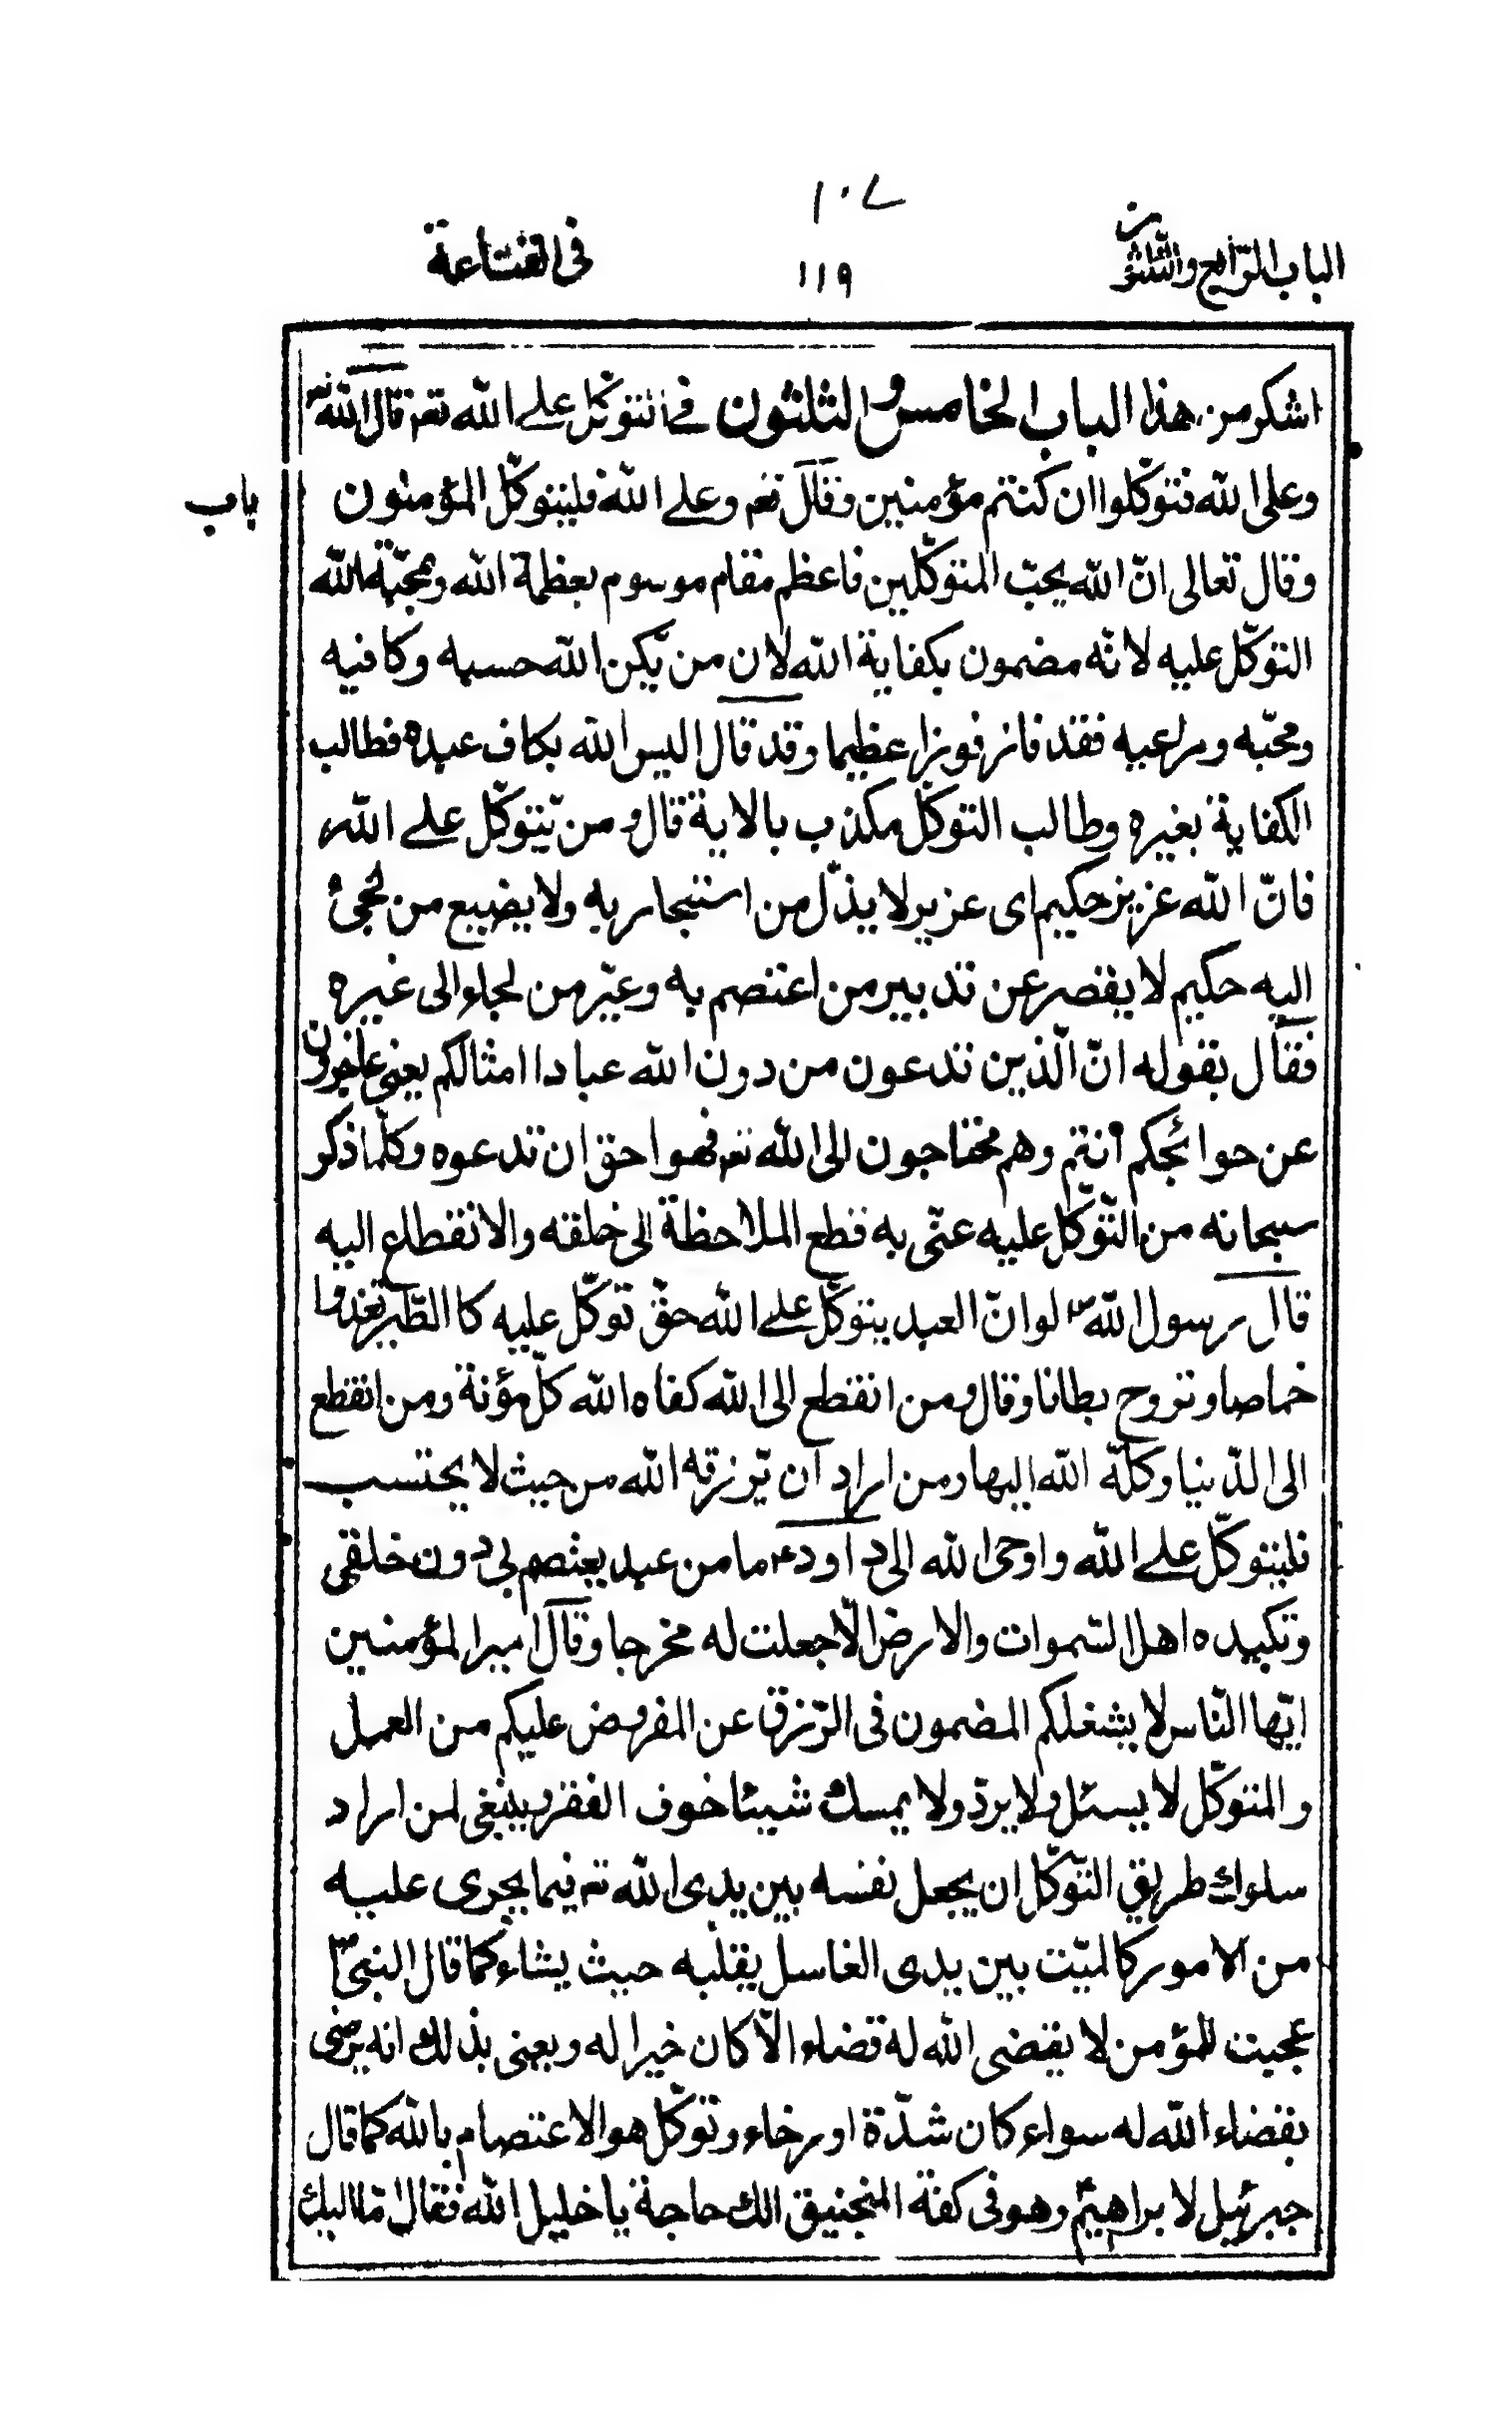 ١٠٧
الباب الرّابع والثّلثون
١١٩
فى القناعة
اشكر من هذا الباب الخامس و الثلثون فى التوكّل على الله تعه قال الله تعه
وعلى الله فتوكّلوا ان كنتم مؤمنين وقال تعه وعلى الله فليتوكّل المؤمنون
باب
وقال تعالى انّ الله يحبّ المتوكّلين فاعظم مقام موسوم بعظمة الله وبمحبّة الله
التوكّل عليه لانّه مضمون بكفاية الله لان من يّكن الله حسبه وكافيه
ومحبّه ومراعيه فقد فاز فوزا عظيما وقد قال اليس الله بكاف عبده فطالب
الكفاية بغيره وطالب التوكّل مكذب بالاية قال و من يّتوكّل على الله
فانّ الله عزيز حكيم اى عزيز لا يذلّ من استجار به ولا يضيع من لجئ
اليه حكيم لا يقصر عن تدبير من اعتصم به وعيّر من لجاء الى غيره
فقال بقوله انّ الّذين تدعون من دون الله عبادا امثالكم يعنى عاجزون
عن حوائجكم انتم وهم محتاجون الى الله تعه فهو احق ان تدعوه وكلّما ذكر
سبحانه من التّوكّل عليه عنّى به قطع الملاحظة الى خلقه والانقطاع اليه
قال رسول اللهؐ لو انّ العبد يتوكّل على الله حقّ توكّل عليه كا الطّير تغدوا
خماصا وتروح بطانا وقال و من انقطع الى الله كفاه الله كلّ مؤنة ومن انقطع
الى الدّنيا وكلّه الله اليها ومن اراد ان يّرزقه الله من حيث لا يحتسب
فليتوكّل على الله واوحى الله الى داودء ما من عبد يعتصم بى دون خلقى
وتكيده اهل السّموات والارض الّا جعلت له مخرجا وقال امير المؤمنين
ايّها النّاس لا يشغلكم المضمون فى الرّزق عن المفروض عليكم من العمل
والمتوكّل لا يسئل ولا يردّ ولا يمسك شيئا خوف الفقر وينبغى لمن اراد
سلوك طريق التّوكّل ان يجعل نفسه بين يدى الله ته فيما يجرى عليه
من الامور كالميّت بين يدى الغاسل يقلّبه حيث يشاء كما قال النبىّؐ
عجبت للمؤمن لا يقضى الله له قضاء الّا كان خيرا له ويعنى بذلك انه يرضى
بقضاء الله له سواء كان شدّة او رخاء وتوكّل هو الاعتصام بالله كما قال
جبرئيل لابراهيمؑ وهو فى كفة المنجنيق الك حاجة يا خليل الله فقال امّا اليك